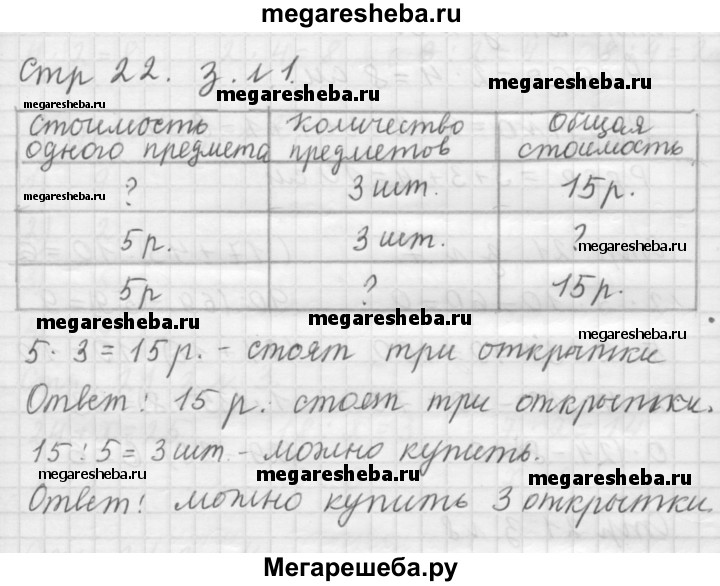 megaresheba.ru
Стр 22. З. №1.
megaresheba.ru megaresheba.ru megaresheba.ru
Стоимость одного предмета Количество предметов Общая стоимость
megaresheba.ru ? 3 шт. 15 р.
5 р. 3 шт. ?
megaresheba.ru
5 р ? 15 р.
megaresheba.ru megaresheba.ru megaresheba.ru
5 · 3 = 15 р. - стоят три открытки
Ответ: 15 р. стоят три открытки.
15 : 5 = 3 шт - можно купить.
megaresheba.ru megaresheba.ru megaresheba.ru
Ответ: можно купить 3 открытки.
Мегарешеба.ру